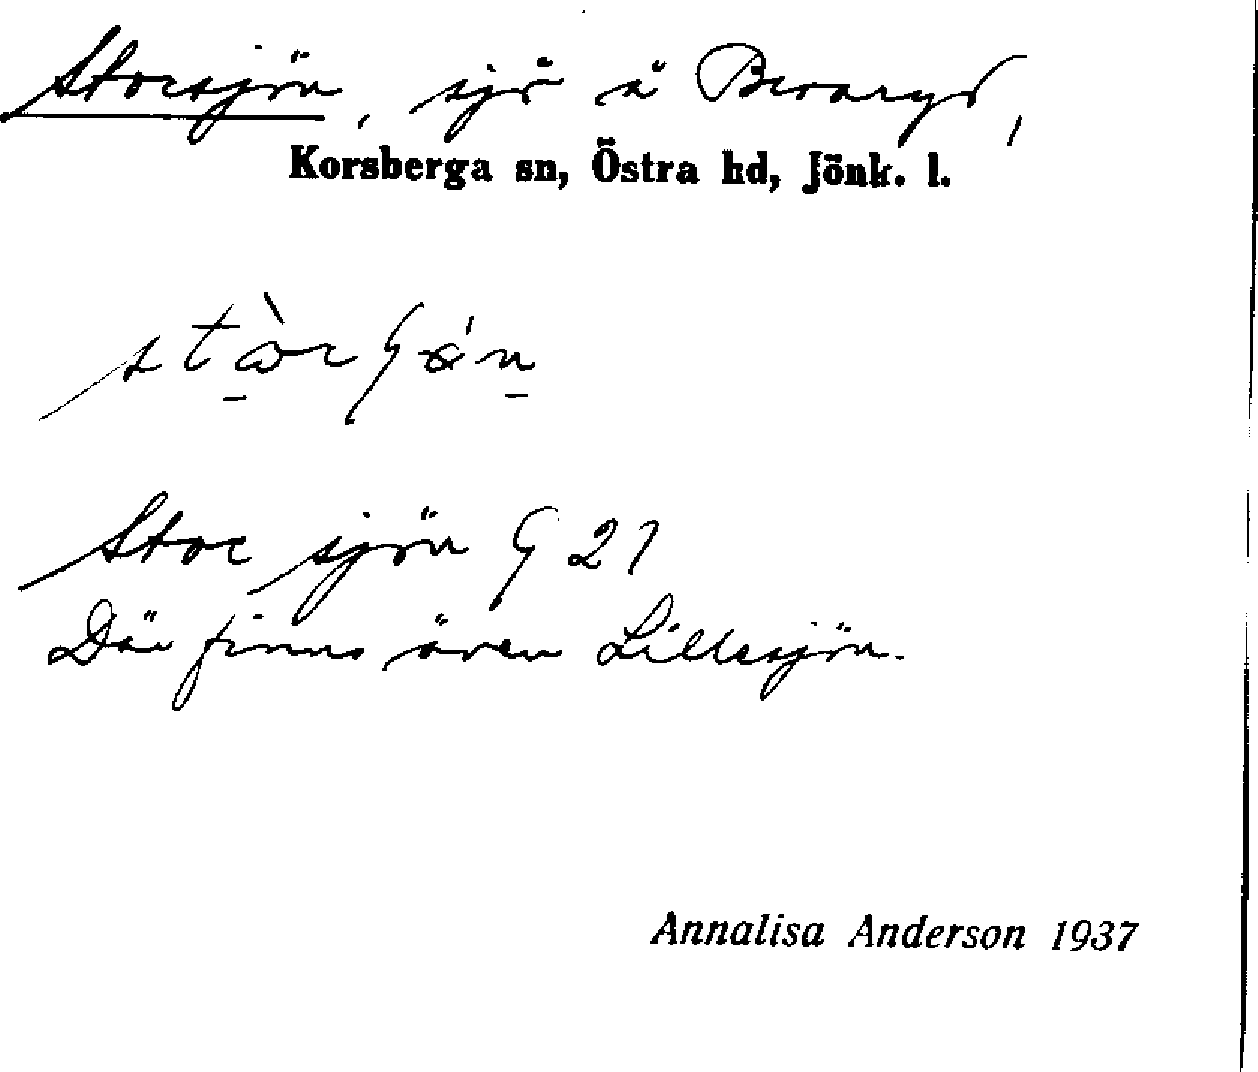 Storsjön, sjö å Broaryd,
Korsberga sn, Östra hd, Jönk. l.
Stor sjön G 21
Där finns även Lillesjön.
Annalisa Anderson 1937